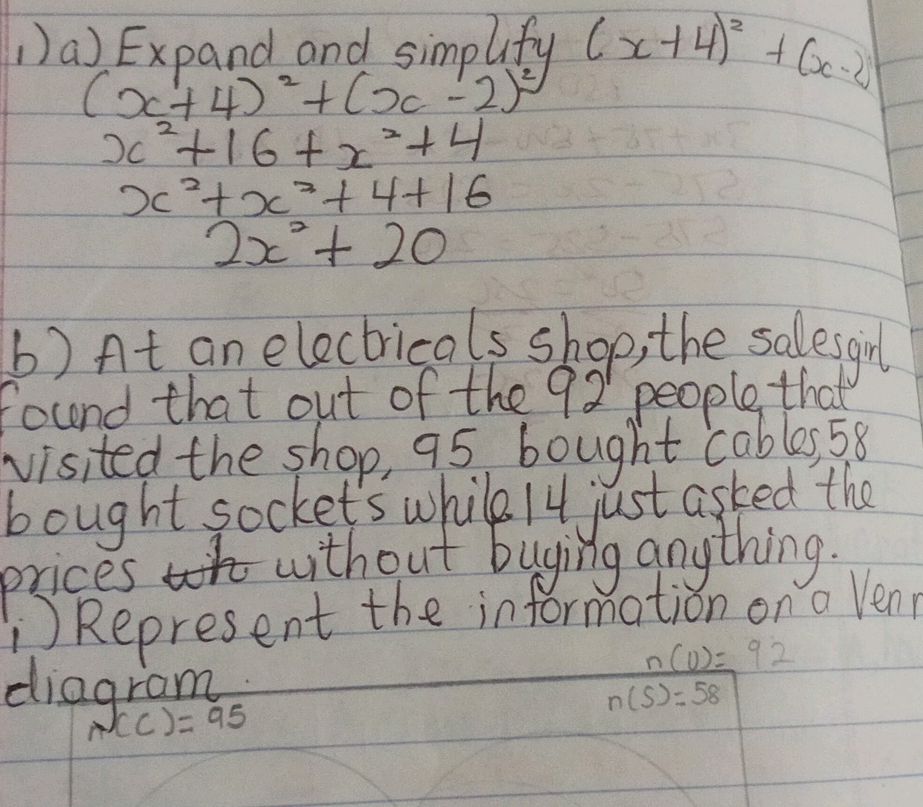 1) a) Expand and simplify (x+4)² + (x-2)
(x+4)² + (x-2)²
x² + 16 + x² + 4
x² + x² + 4 + 16
2x² + 20
b) At an electricals shop, the salesgirl
found that out of the 92 people that
visited the shop, 95 bought cables, 58
bought sockets while 14 just asked the
prices without buying anything.
i) Represent the information on a Venn
diagram.
n(U) = 92
n(C) = 95
n(S) = 58